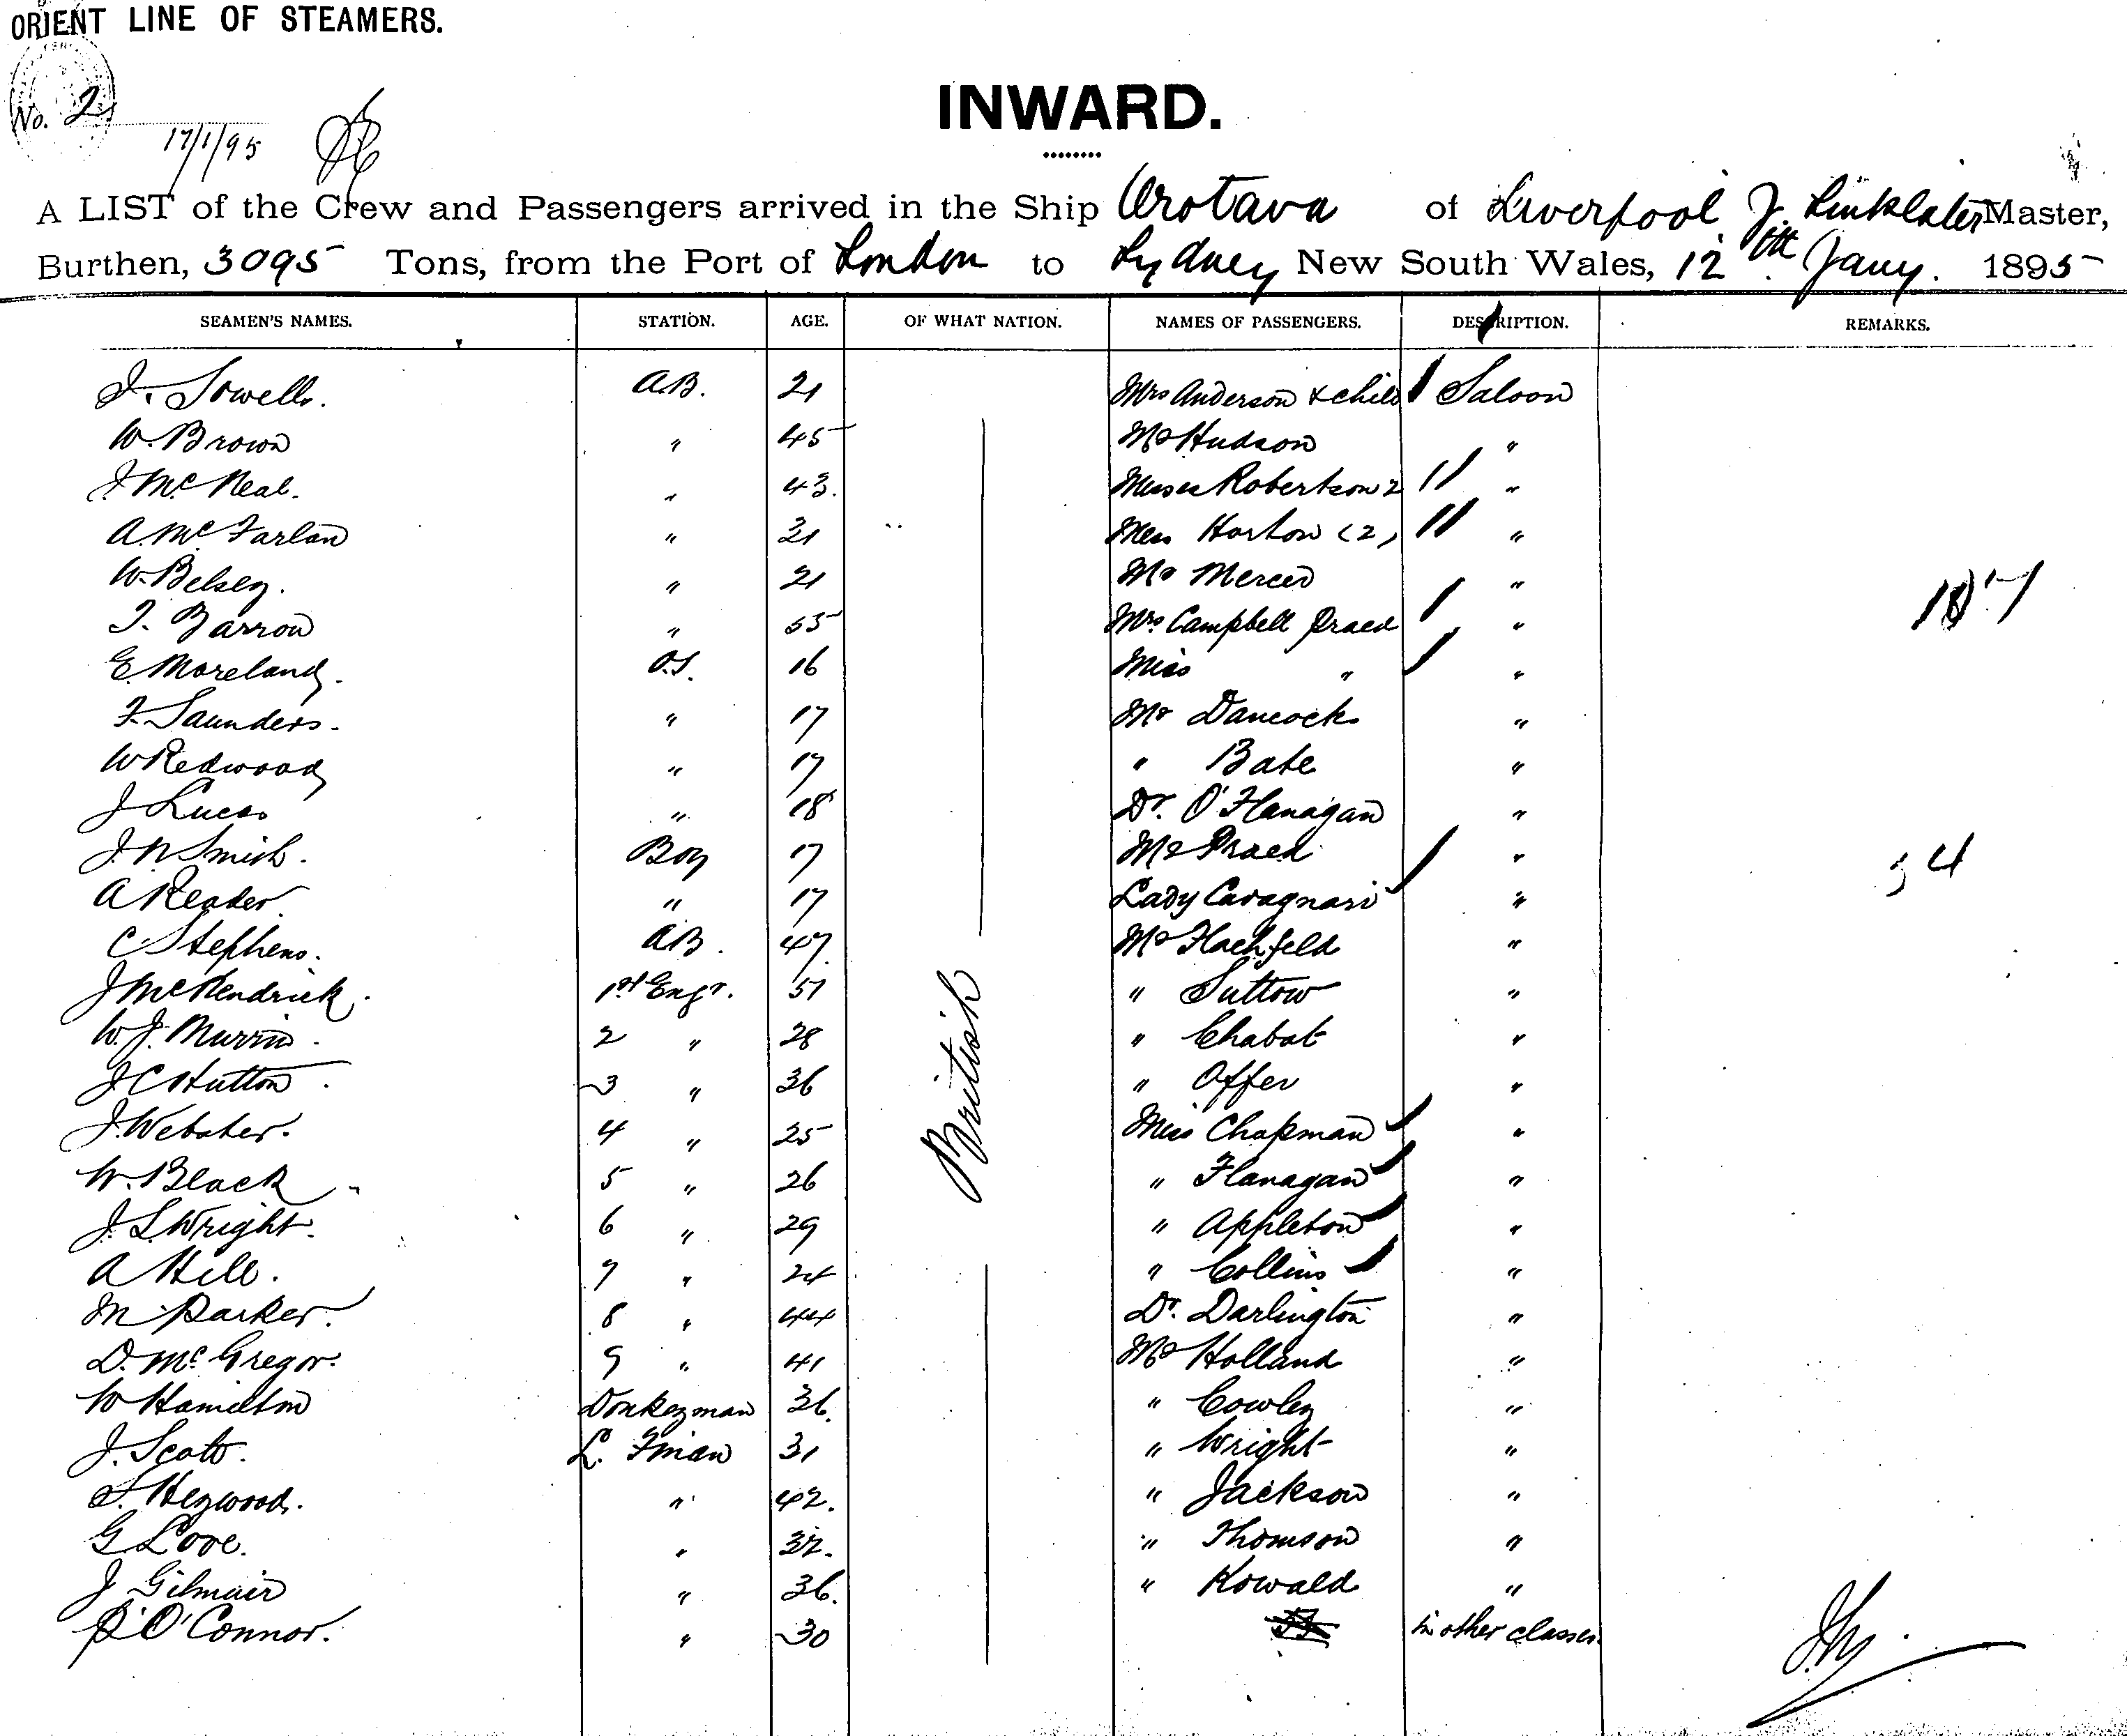 ORIENT LINE OF STEAMERS.
No. 2
17/1/95
INWARD.
A LIST of the Crew and Passengers arrived in the Ship Orotava of Liverpool, J. Linklater Master,
Burthen, 3095 Tons, from the Port of London to Sydney New South Wales, 12th Jany. 1895
SEAMEN'S NAMES. STATION. AGE. OF WHAT NATION. NAMES OF PASSENGERS. DESCRIPTION. REMARKS.
J. Sowells. A.B. 21 Mrs Anderson & Child Saloon
W. Brown " 45 Mr Hudson "
J. McNeal. " 43. Misses Robertson 2 "
A. McFarlan " 21 Horton (2) "
W. Belsey. " 21 Mr Mercer "
T. Barron " 55 Mrs Campbell Praed " 107
E Moreland. O.S. 16 Miss " "
F. Saunders. " 17 Mr Dancock "
W Redwood " 17 " Bate "
J Lucas " 18 Dr. O'Flanagan "
J. N Smith. Boy 17 Mr Praed " 34
A Reader. " 17 Lady Cavagnari "
C Stephens. A.B. 47. Mr Flachfeld "
J McKendrick. 1st Engr. 51 " Sutton "
W. J. Murrin. 2 " 28 " Chabot "
J C Hutton. 3 " 36 " Offer "
J. Webster. 4 " 25 Miss Chapman "
W. Black 5 " 26 " Flanagan "
J. L. Wright. 6 " 29 " Appleton "
A Hill. 7 " 24 " Collins "
M Parker. 8 " 44 Dr. Darlington "
D. McGregor. 9 " 41 Mr Holland "
W Hamilton Donkeyman 36. " Cowley "
J. Scott. L. Fman 31 " Wright "
S. Heywood. " 42. " Jackson "
G Love. " 32. " Thomson "
J Gilmair " 36. " Kowald "
P O'Connor. " 30 in other classes.
British